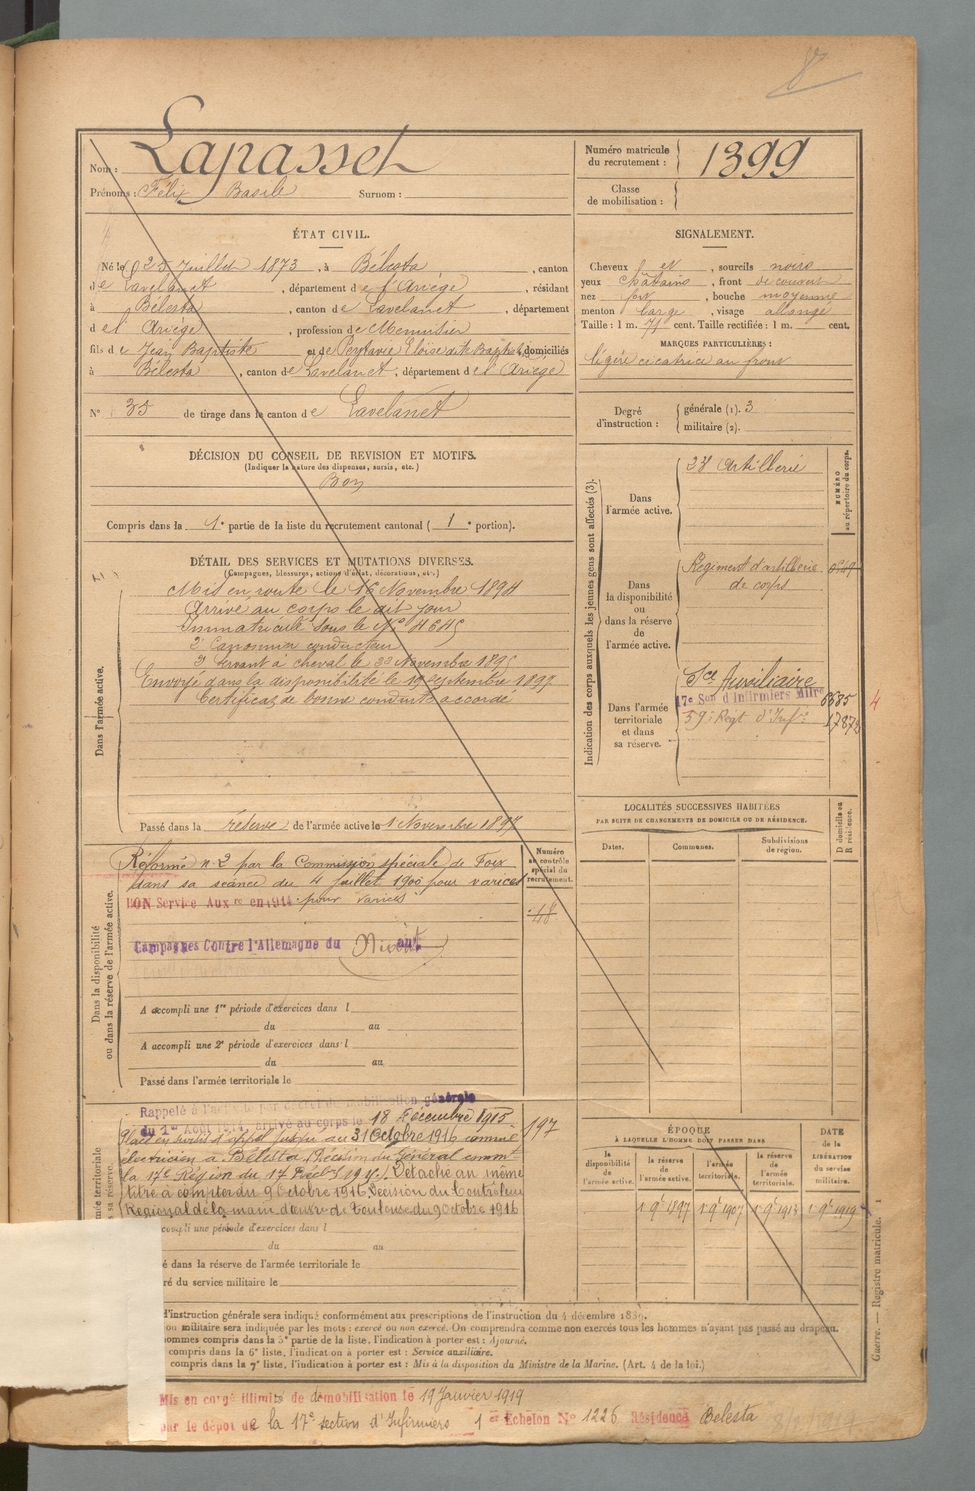 Nom : Lapasset
Prénoms : Félix Basile Surnom :
Numéro matricule du recrutement : 1399
Classe de mobilisation :
ÉTAT CIVIL.
Né le 25 Juillet 1873, à Bélesta, canton
de Lavelanet, département de l'Ariège, résidant
à Bélesta, canton de Lavelanet, département
de l'Ariège, profession de Menuisier
fils de Jean Baptiste et de Peytavie Eloïse dite Baptiste, domiciliés
à Bélesta, canton de Lavelanet, département de l'Ariège
N° 35 de tirage dans le canton de Lavelanet
SIGNALEMENT.
Cheveux et, sourcils noirs
yeux châtains, front découvert
nez fort, bouche moyenne
menton large, visage allongé
Taille : 1 m. 71 cent. Taille rectifiée : 1 m. cent.
MARQUES PARTICULIÈRES :
légère cicatrice au front
Degré d'instruction :
générale (1). 3
militaire (2).
DÉCISION DU CONSEIL DE REVISION ET MOTIFS.
(Indiquer la nature des dispenses, sursis, etc.)
Bon
Compris dans la 1e partie de la liste du recrutement cantonal (1e portion).
DÉTAIL DES SERVICES ET MUTATIONS DIVERSES.
(Campagnes, blessures, actions d'éclat, décorations, etc.)
Dans l'armée active.
Mis en route le 16 Novembre 1894
Arrivé au corps le dit jour
Immatriculé sous le N° 4645
2e Canonnier conducteur
2e Servant à cheval le 23 Novembre 1895
Envoyé dans la disponibilité le 19 septembre 1897
Certificat de bonne conduite accordé
Passé dans la réserve de l'armée active le 1 Novembre 1897
Indication des corps auxquels les jeunes gens sont affectés (3).
NUMÉRO au répertoire du corps.
Dans l'armée active.
23e Artillerie
Dans la disponibilité ou dans la réserve de l'armée active.
Régiment d'artillerie
de corps
Dans l'armée territoriale et dans sa réserve.
Sce Auxiliaire
17e Son d'Infirmiers Mlires
59e Regt d'Infie
4
LOCALITÉS SUCCESSIVES HABITÉES
PAR SUITE DE CHANGEMENTS DE DOMICILE OU DE RÉSIDENCE.
Dates. Communes. Subdivisions de région. D domicile ou R résidence.
Dans la disponibilité ou dans la réserve de l'armée active.
Numéro au contrôle spécial du recrutement.
Réformé n° 2 par la Commission spéciale de Foix
dans sa séance du 4 Juillet 1900 pour varices
BON Service Auxre en 1914 pour varices
48
Campagnes Contre l'Allemagne du au
A accompli une 1re période d'exercices dans l
du au
A accompli une 2e période d'exercices dans l
du au
Passé dans l'armée territoriale le
Rappelé à l'activité par décret de mobilisation générale
du 1er Août 1914, arrivé au corps le 18 Décembre 1915
197
Placé en sursis d'appel jusqu'au 31 Octobre 1916 comme
électricien à Bélesta, Décision du Général commt
la 17e Région du 17 Décb 1915. Détaché au même
titre à compter du 9 Octobre 1916, Décision du Contrôleur
Régional de la main d'œuvre de Toulouse du 9 Octobre 1916
compli une période d'exercices dans l
du au
é dans la réserve de l'armée territoriale le
ré du service militaire le
ÉPOQUE
À LAQUELLE L'HOMME DOIT PASSER DANS
la disponibilité de l'armée active.
la réserve de l'armée active.
l'armée territoriale.
la réserve de l'armée territoriale.
DATE de la LIBÉRATION du service militaire.
1 9e 1897 1 9e 1907 1 9e 1913 1 9e 1919
d'instruction générale sera indiqué conformément aux prescriptions de l'instruction du 4 décembre 1889.
ou militaire sera indiquée par les mots : exercé ou non exercé. On comprendra comme non exercés tous les hommes n'ayant pas passé au drapeau.
ommes compris dans la 5e partie de la liste, l'indication à porter est : Ajourné.
compris dans la 6e liste, l'indication à porter est : Service auxiliaire.
compris dans la 7e liste, l'indication à porter est : Mis à la disposition du Ministre de la Marine. (Art. 4 de la loi.)
Guerre. — Registre matricule. 1
Mis en congé illimité de démobilisation le 19 Janvier 1919
par le dépôt de la 17e section d'Infirmiers 1er Échelon N° 1226 Résidence Belesta